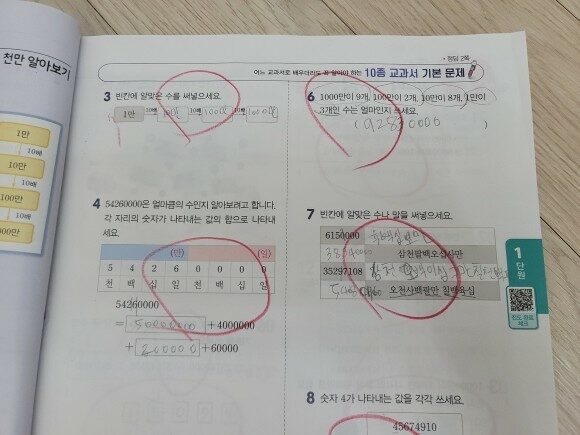 천만 알아보기
1만
10배
10만
10배
100만
10배
정답 2쪽
어느 교과서로 배우더라도 꼭 알아야 하는 10종 교과서 기본 문제
3 빈칸에 알맞은 수를 써넣으세요.
1만 10배 10배 10배
4 54260000은 얼마큼의 수인지 알아보려고 합니다.
각 자리의 숫자가 나타내는 값의 합으로 나타내
세요.
(만) (일)
5 4 2 6 0 0 0 0
천 백 십 일 천 백 십 일
54260000
= 50000000 +4000000
+ 200000 +60000
6 1000만이 9개, 100만이 2개, 10만이 8개, 1만이
3개인 수는 얼마인지 쓰세요.
7 빈칸에 알맞은 수나 말을 써넣으세요.
6150000 육백십오만
삼천팔백오십사만
35297108
오천사백팔만 칠백육십
1
단원
진도 완료
체크
8 숫자 4가 나타내는 값을 각각 쓰세요.
45674910